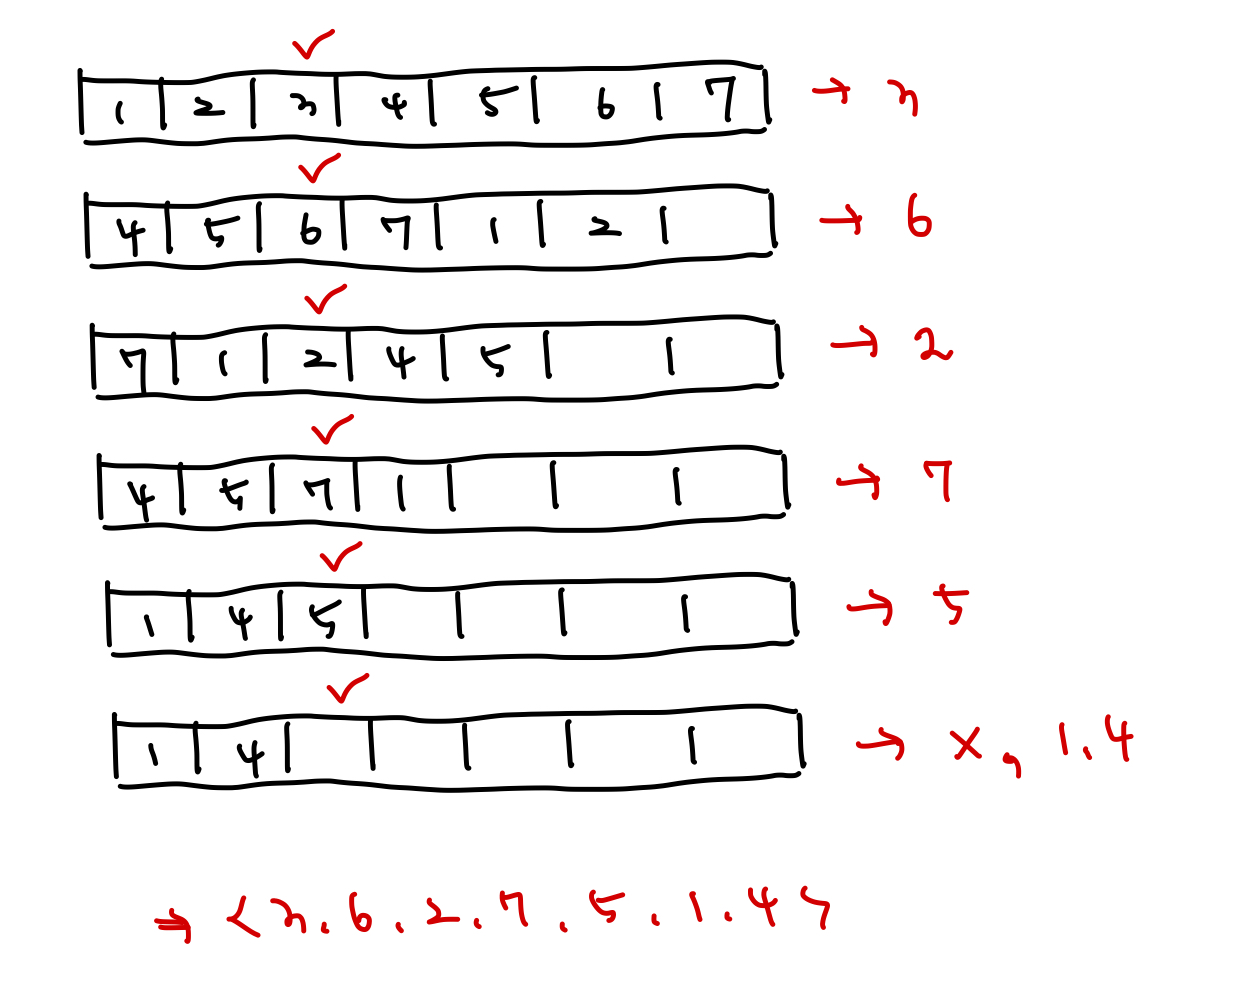 ✓
1 | 2 | 3 | 4 | 5 | 6 | 7 → 3
✓
4 | 5 | 6 | 7 | 1 | 2 | → 6
✓
7 | 1 | 2 | 4 | 5 | | → 2
✓
4 | 5 | 7 | 1 | | | → 7
✓
1 | 4 | 5 | | | | → 5
✓
1 | 4 | | | | | → X, 1.4
⇒ <3.6.2.7.5.1.4>